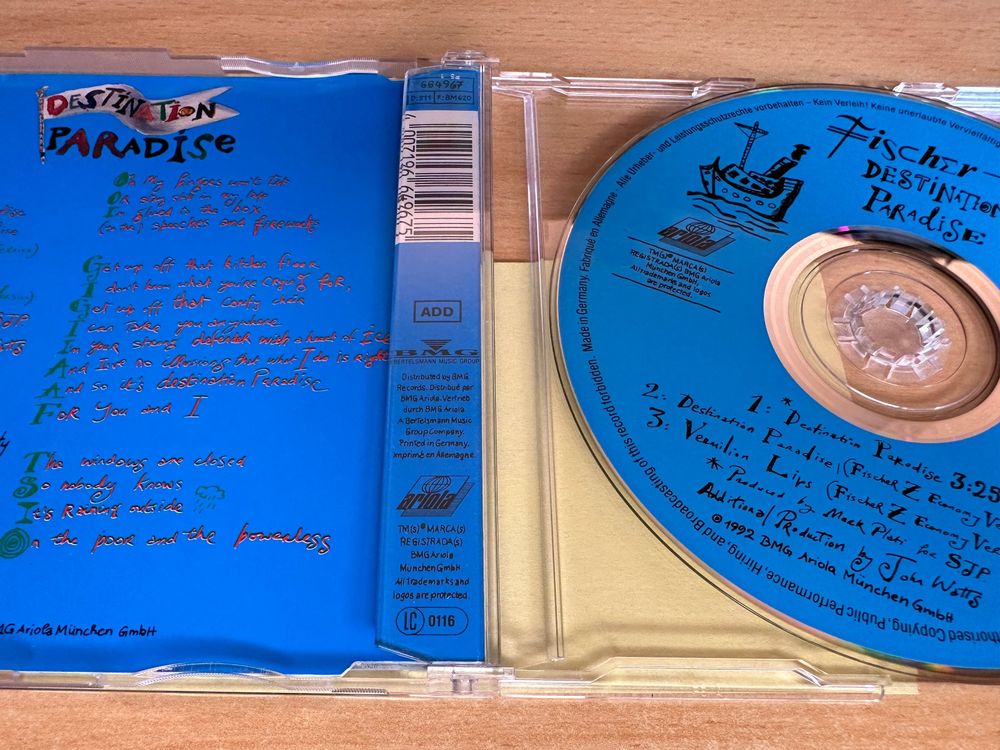 DESTINATION
PARADISE
Oh My fingers won't
Or sing still in my
I'm glued to the box
(in in) speeches and fireworks
Get up off that kitchen floor
I don't know what you're crying for,
Get up off that comfy chair
I can take you anywhere
In your strong defended with a heart of Ice
And I've no illusions that what I do is right
And so it's destination Paradise
FOR YOU and I
The windows are closed
So nobody knows
It's Raining outside
On the poor and the powerless
BMG Ariola München GmbH
664967
D:511 F:BM620
4 007196 649675
ADD
BMG
BERTELSMANN MUSIC GROUP
Distributed by BMG
Records. Distribué par
BMG Ariola. Vertrieb
durch BMG Ariola
A Bertelsmann Music
Group Company.
Printed in Germany.
Imprimé en Allemagne.
ariola
TM(S)® MARCA(S)
REGISTRADA(S)
BMG Ariola
München GmbH.
All trademarks and
logos are protected.
LC 0116
Made in Germany. Fabriqué en Allemagne. Alle Urheber- und Leistungsschutzrechte vorbehalten – Kein Verleih! Keine unerlaubte
Fischer
DESTINATION
PARADISE
ariola
TM(S)® MARCA(S)
REGISTRADA(S) BMG Ariola
München GmbH.
All trademarks and logos
are protected.
1: * Destination Paradise 3:25
2: Destination Paradise (Fischer Z Economy
3: Vermilion Lips (Fischer Z Economy
* Produced by Mark Plati for SJP
Additional Production by John Watts
℗ 1992 BMG Ariola München GmbH
Copying, Public Performance, Hiring, and Broadcasting of this record forbidden.